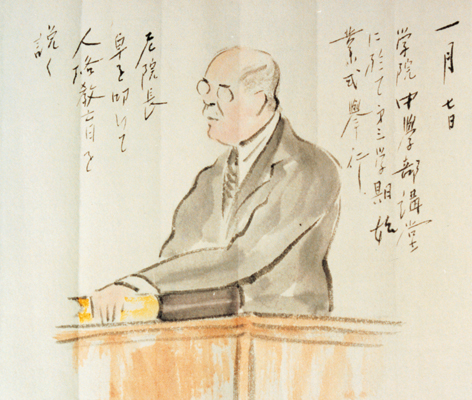 一月七日
学院中學部講堂
に於て第三学期始
業式擧行
院長
卓を叩いて
人格教育を
説く